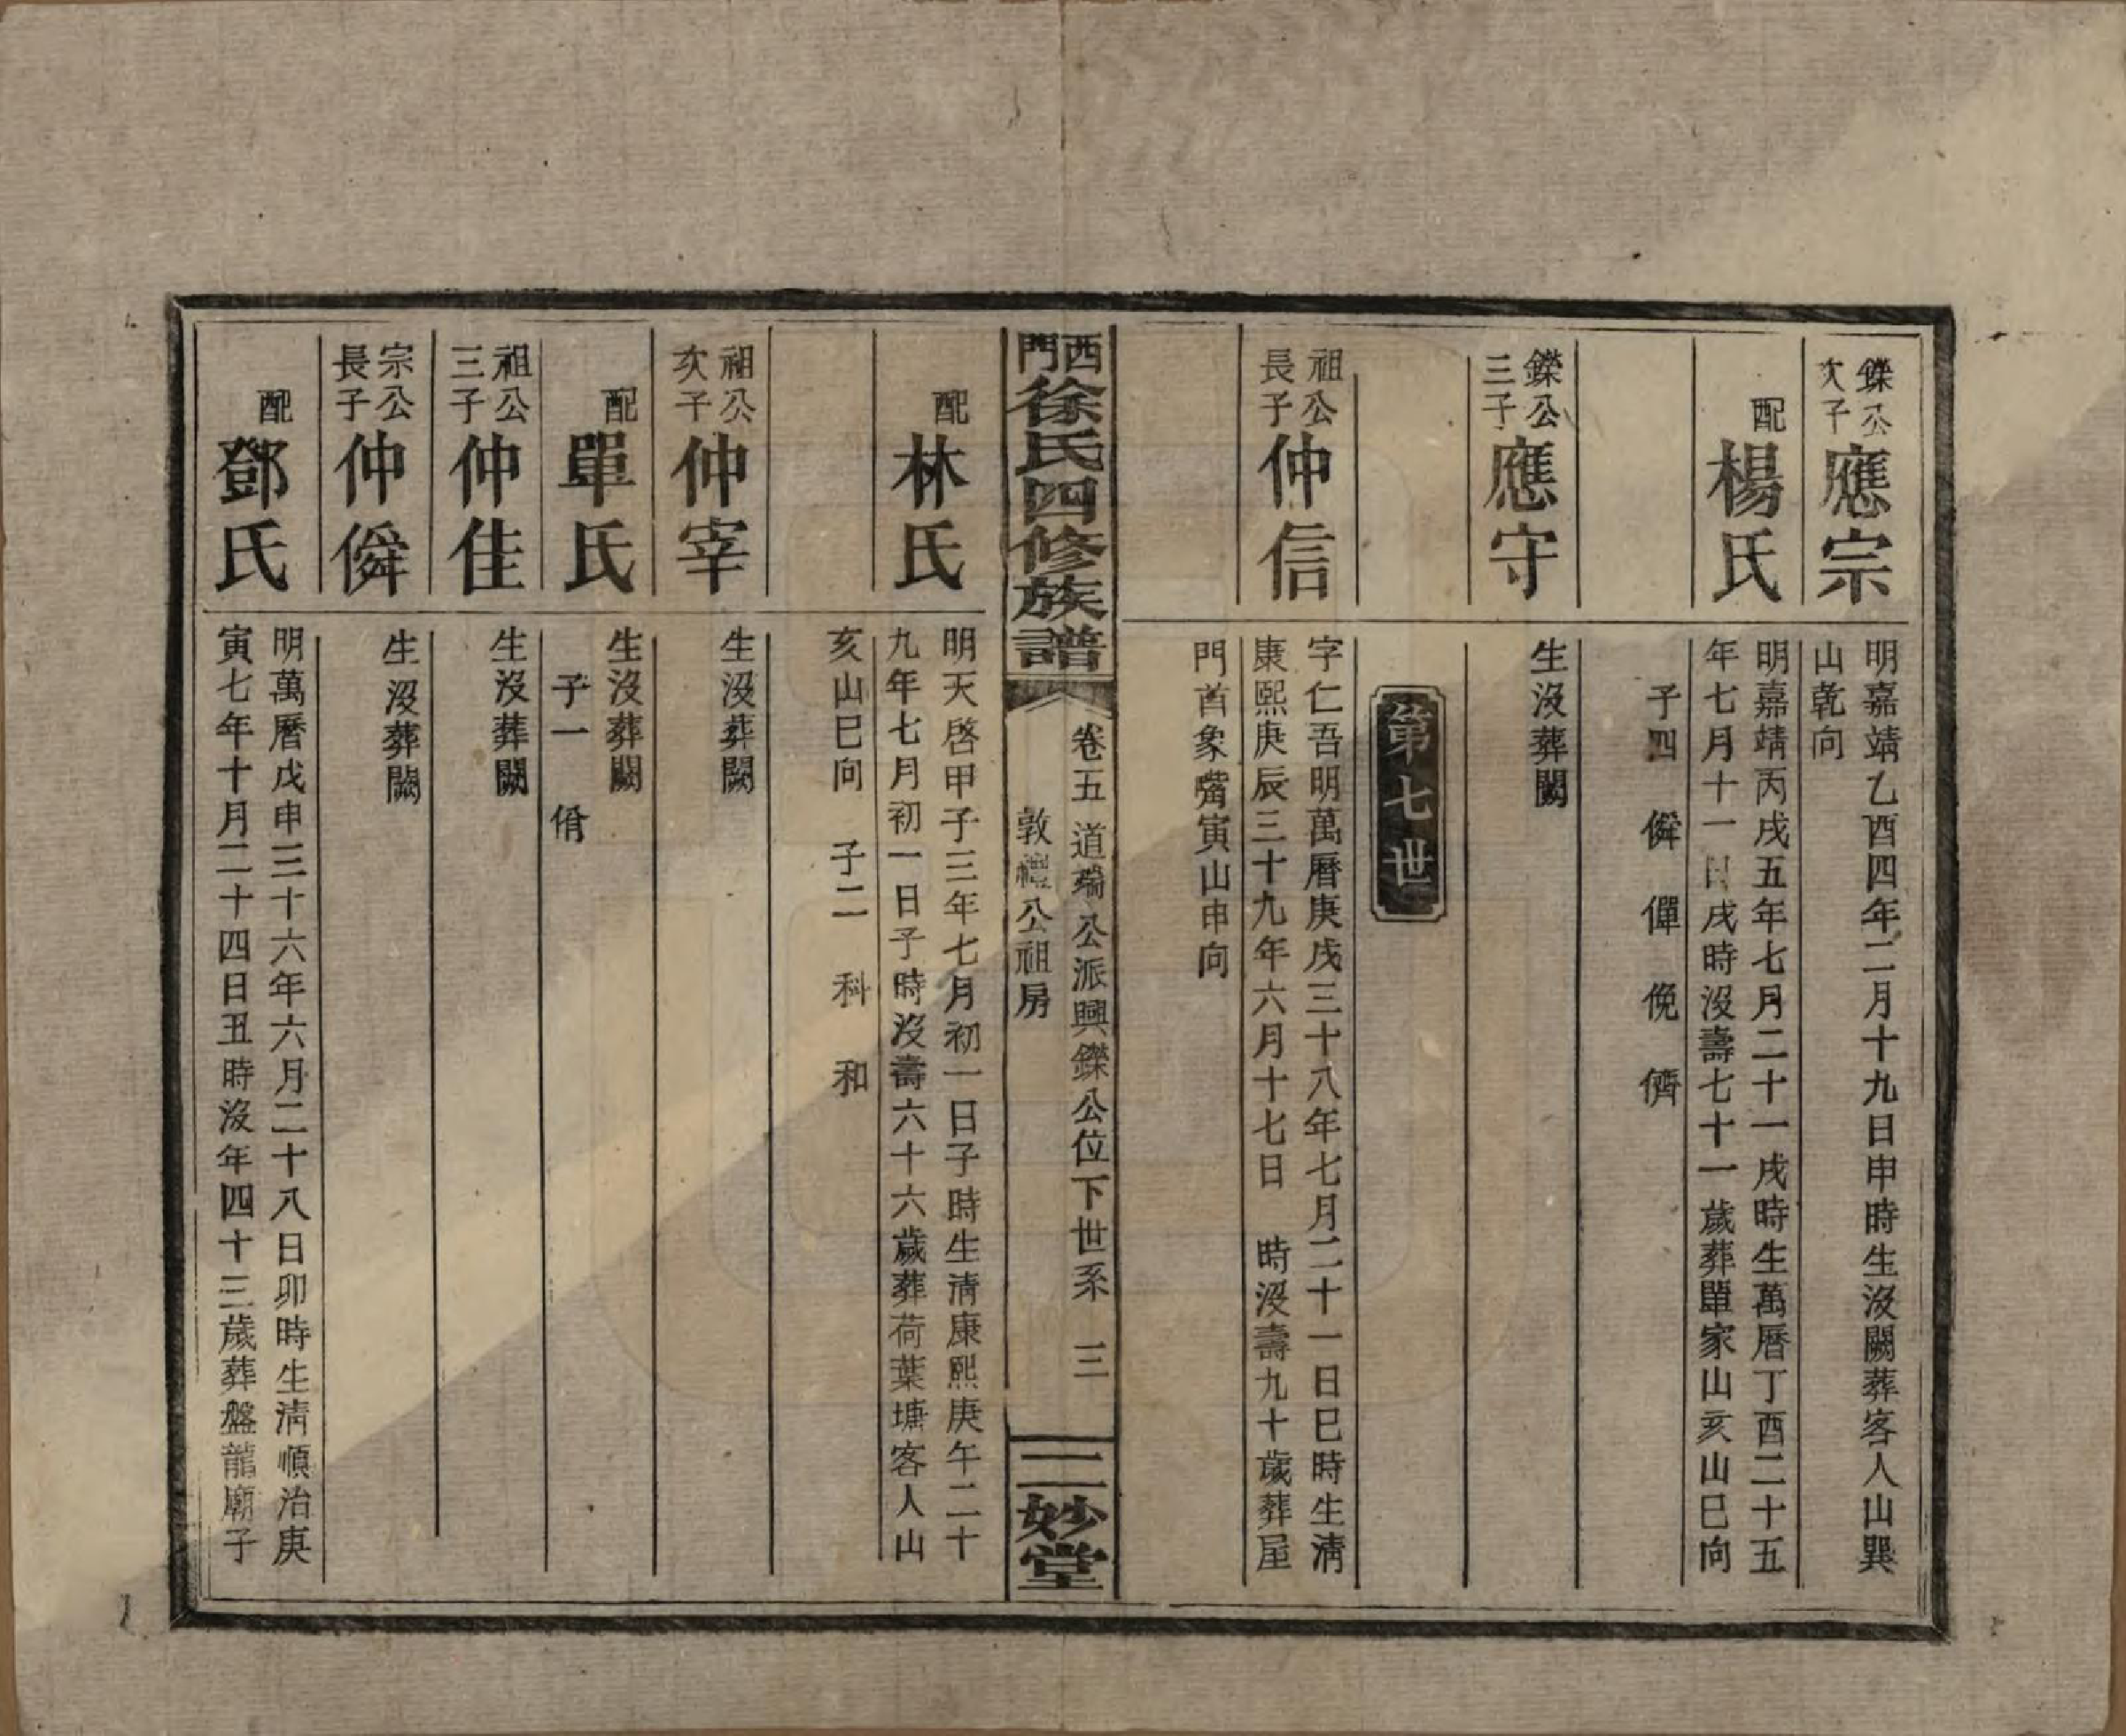 鑠公次子 應宗
明嘉靖乙酉四年二月十九日申時生沒闕葬客人山巽
山乾向
配 楊氏
明嘉靖丙戌五年七月二十一戌時生萬曆丁酉二十五
年七月十一日戌時沒壽七十一歲葬單家山亥山巳向
子四 僯 僤 俛 儕
鑠公三子 應守
生沒葬闕
第七世
祖公長子 仲信
字仁吾明萬曆庚戌三十八年七月二十一日巳時生清
康熙庚辰三十九年六月十七日 時沒壽九十歲葬屋
門首象嘴寅山申向
西門徐氏四修族譜 卷五 道瑞公派興鑠公位下世系 三
敦禮公祖房
二妙堂
配 林氏
明天啓甲子三年七月初一日子時生清康熙庚午二十
九年七月初一日子時沒壽六十六歲葬荷葉塘客人山
亥山巳向 子二 科 和
祖公次子 仲宰
生沒葬闕
配 單氏
生沒葬闕
子一 佾
祖公三子 仲佳
生沒葬闕
宗公長子 仲僯
生沒葬闕
配 鄧氏
明萬曆戊申三十六年六月二十八日卯時生清順治庚
寅七年十月二十四日丑時沒年四十三歲葬盤龍廟子